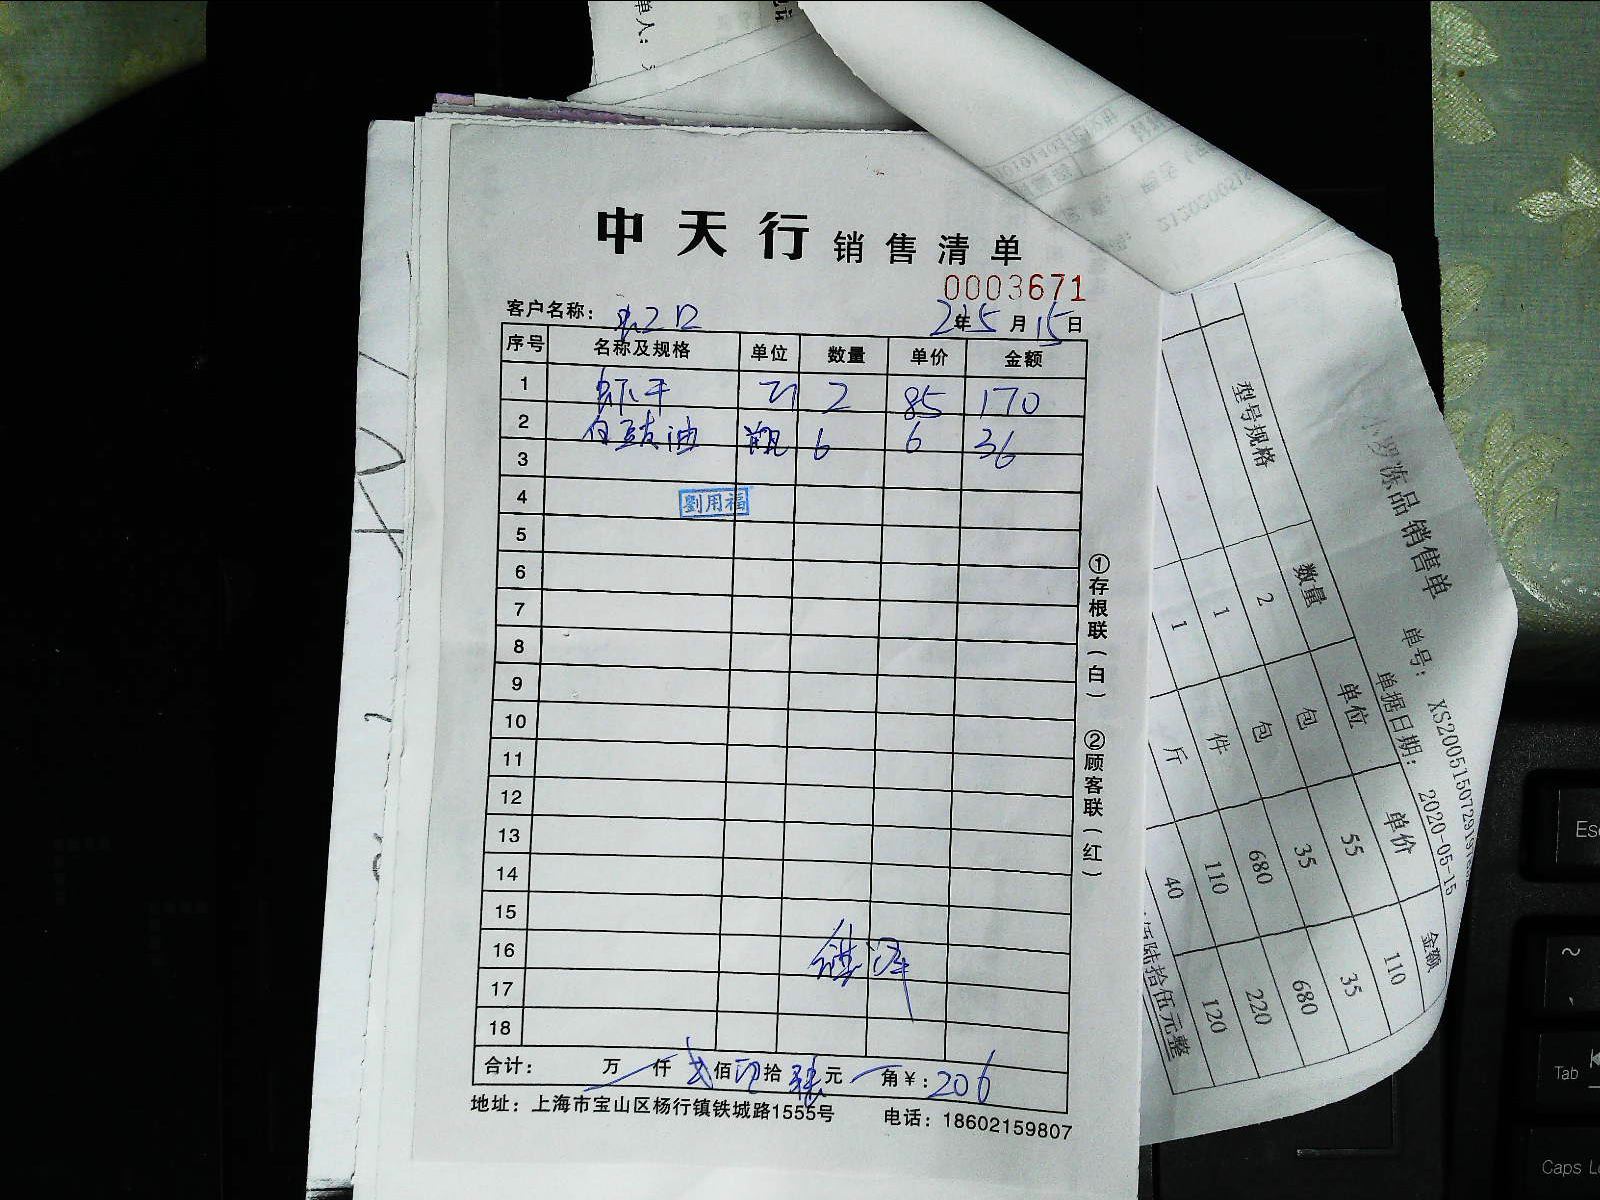 中天行 销售清单
0003671
客户名称：
2年5月15日
序号 名称及规格 单位 数量 单价 金额
1 虾干 2 85 170
2 白豉油 瓶 6 6 36
3
4 劉用福
5
6
7
8
9
10
11
12
13
14
15
16
17
18
合计： 万 仟 贰佰 拾 陆元 角￥：206
地址：上海市宝山区杨行镇铁城路1555号 电话：18602159807
①存根联（白） ②顾客联（红）
单人：
罗冻品销售单
单号： XS200515072919
单据日期： 2020-05-15
型号规格 数量 单位 单价 金额
2 包 55 110
1 包 35 35
1 件 680 680
110 220
斤 40 120
陆拾伍元整
Esc
~
Tab
Caps